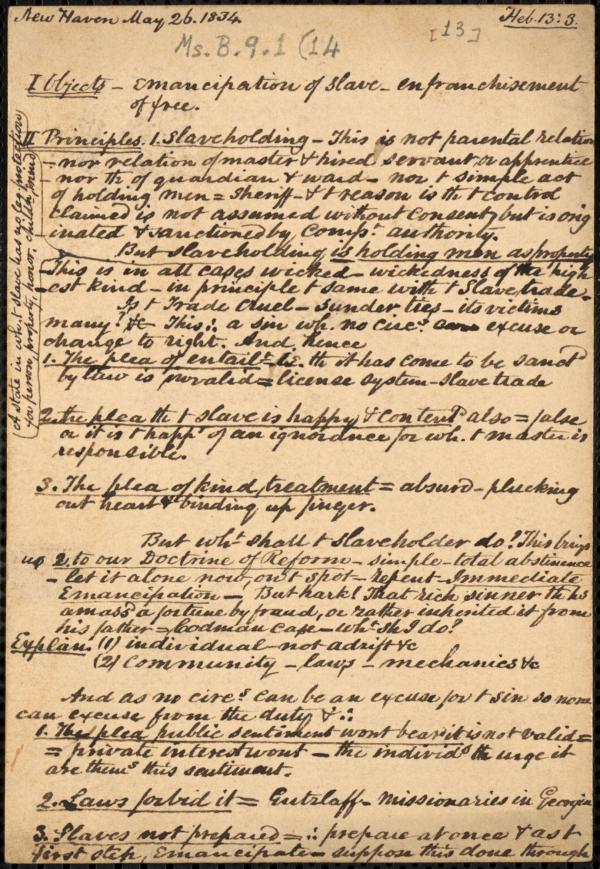 New Haven May 26. 1834.
Heb. 13: 3.
Ms. B. 9. 1 (14
[13]
I Objects - Emancipation of Slave - enfranchisement
of free.
II Principles. 1. Slaveholding - This is not parental relation
nor relation of master & hired servant or apprentice
nor th of guardian & ward - nor t simple act
of holding men = Sheriff - & t reason is th t control
claimed is not assumed without consent, but is orig
inated & sanctioned by Compt authority.
But slaveholding is holding men as property
This is in all cases wicked - wickedness of the high
est kind - in principle t same with t Slave trade.
Is t Trade cruel - sunder ties - its victims
many? &c This ∴ a sin wh. no circs can excuse or
change to right. And hence
1. The plea of entailt i.e. th it has come to be sanctd
by law is invalid = license system - slave trade
2. the plea th t slave is happy & contentd also = false
or it is t happs of an ignorance for wh. t master is
responsible.
3. The plea of kind treatment = absurd - plucking
out heart & binding up finger.
But wht shall t slaveholder do? This brings
us 2. to our Doctrine of Reform - simple - total abstinence
- let it alone now, on t spot - repent - Immediate
Emancipation -, But hark! That rich sinner th hs
amassd a fortune by fraud, or rather inherited it from
his father = Codman Case - wht sh I do?
Explan. (1) individual - not adrift &c
(2) Community - laws - mechanics &c
And as no circs can be an excuse for t sin so none
can excuse from the duty & ∴
1. The plea public sentiment wont bear it is not valid =
= private interest wont - the individs th urge it
are thems this sentiment.
2. Laws forbid it = Gutzlaff - missionaries in Georgia
3. Slaves not prepared = ∴ prepare at once & as t
first step, Emancipate - suppose this done through
A state in wh. t slave has no leg protection
for person, property, honor, children, mind